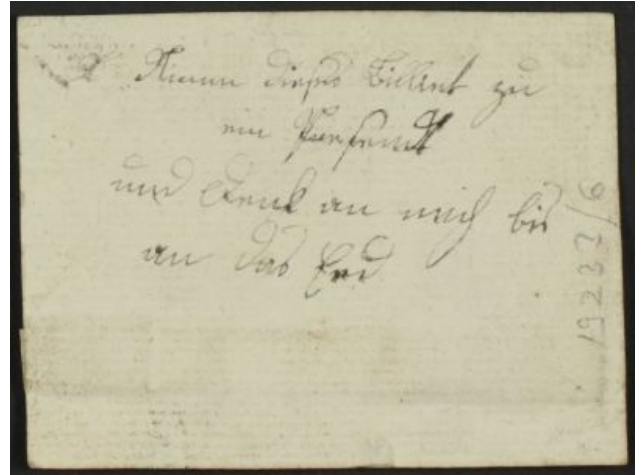 Nimm dieses Billiet zu
ein Pресent
und denk an mich bis
an das End
19237/6